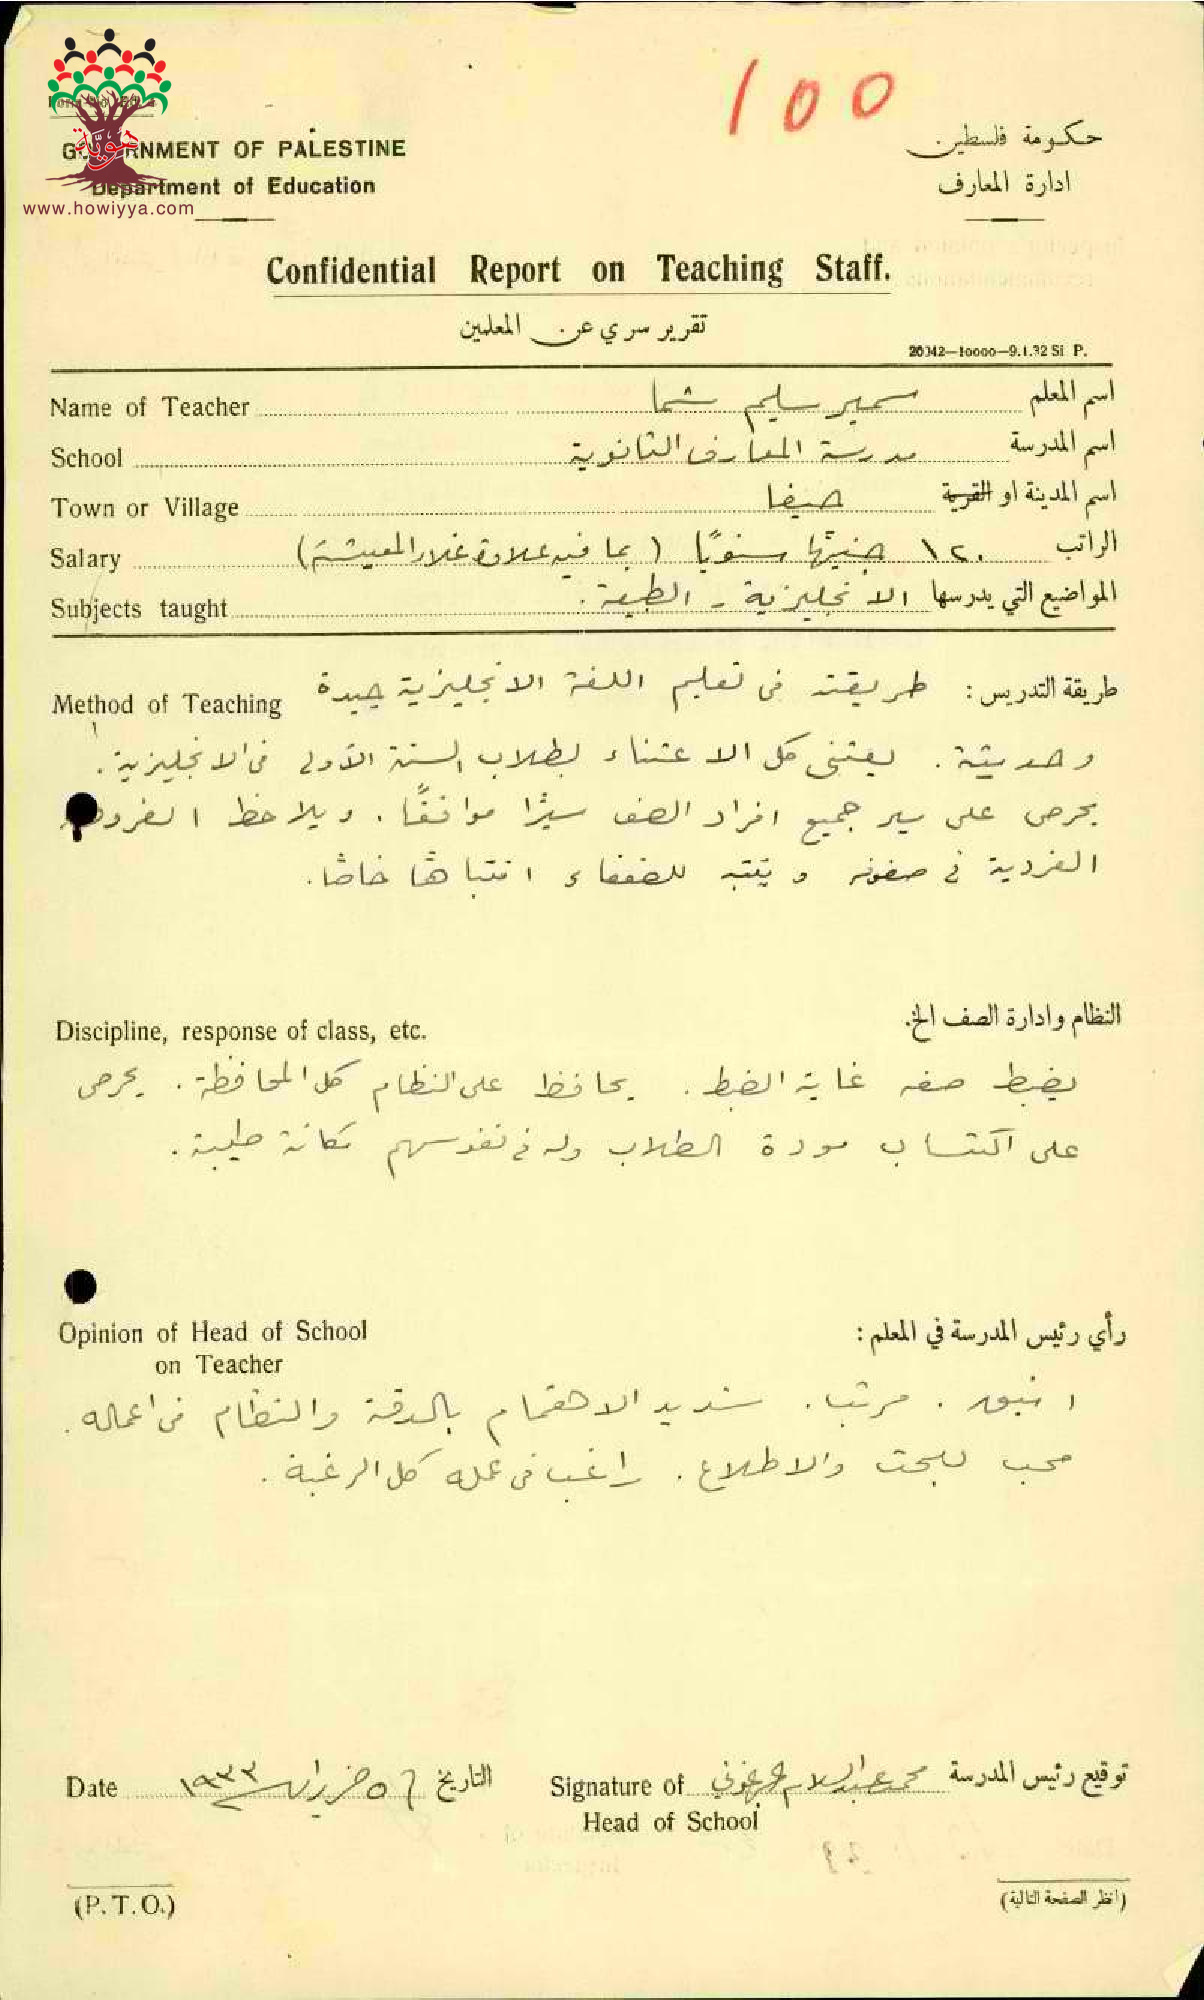 100
هوية
www.howiyya.com
GOVERNMENT OF PALESTINE
Department of Education
حكومة فلسطين
ادارة المعارف
Confidential Report on Teaching Staff.
تقرير سري عن المعلمين
20342—10000—9.1.32 Si P.
Name of Teacher سمير سليم شما اسم المعلم
School مدرسة المعارف الثانوية اسم المدرسة
Town or Village حيفا اسم المدينة او القرية
Salary ١٢٠ جنيهًا سنويًا (بما فيه علاوة غلاء المعيشة) الراتب
Subjects taught الانجليزية - الطبيعة. المواضيع التي يدرسها
Method of Teaching طريقة التدريس: طريقته في تعليم اللغة الانجليزية جيدة
وحديثة. يعتني كل الاعتناء بطلاب السنة الأولى في الانجليزية.
يحرص على سير جميع افراد الصف سيرًا موافقًا. ويلاحظ الفروق
الفردية في صفوفه وينتبه للضعفاء انتباهًا خاصًا.
Discipline, response of class, etc. النظام وادارة الصف الخ.
يضبط صفه غاية الضبط. يحافظ على النظام كل المحافظة. يحرص
على اكتساب مودة الطلاب وله في نفوسهم مكانة طيبة.
Opinion of Head of School on Teacher رأي رئيس المدرسة في المعلم:
انيق. مرتب. شديد الاهتمام بالدقة والنظام في اعماله.
محب للبحث والاطلاع. راغب في عمله كل الرغبة.
Date حزيران ١٩٣٣ التاريخ
Signature of Head of School محمد عبد السلام البرغوثي توقيع رئيس المدرسة
(P.T.O.)
(انظر الصفحة التالية)